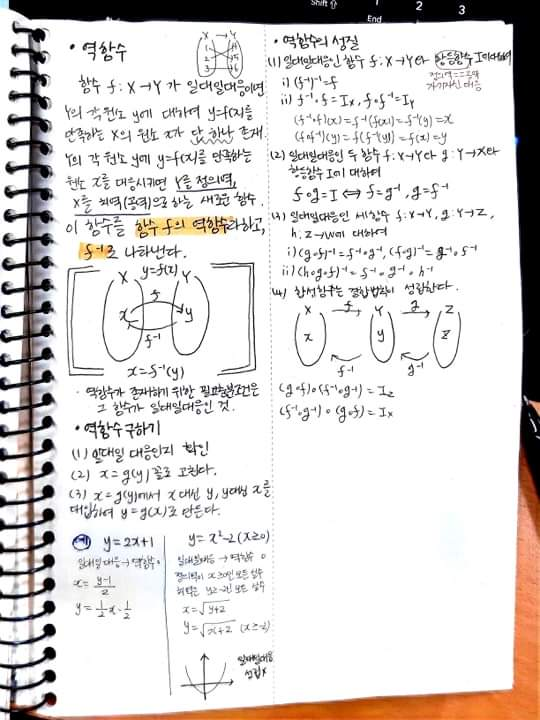 Shift ⇧
End
1
2
3
· 역함수
X Y
1
2
3
함수 f: X→Y 가 일대일대응이면
Y의 각 원소 y에 대하여 y=f(x)를
만족하는 X의 원소 x가 단 하나 존재.
Y의 각 원소 y에 y=f(x)를 만족하는
원소 x를 대응시키면 Y를 정의역,
X를 치역(공역)으로 하는 새로운 함수.
이 함수를 함수 f의 역함수라하고,
f⁻¹로 나타낸다.
X y=f(x) Y
f
x y
f⁻¹
x=f⁻¹(y)
· 역함수가 존재하기 위한 필요충분조건은
그 함수가 일대일대응인 것.
· 역함수 구하기
(1) 일대일 대응인지 확인
(2) x=g(y) 꼴로 고친다.
(3) x=g(y)에서 x 대신 y, y대신 x를
대입하여 y=g(x)로 만든다.
예 y=2x+1
일대일대응→역함수 o
x=(y-1)/2
y=1/2x-1/2
y=x²-2(x≥0)
일대일대응→역함수 o
정의역이 x≥0인 모든 실수
치역은 y≥-2인 모든 실수
x=√(y+2)
y=√(x+2) (x≥-2)
일대일대응
성립 x
· 역함수의 성질
(1) 일대일대응인 함수 f: X→Y와 항등함수 I에 대하여
자기자신 대응
i) (f⁻¹)⁻¹=f
ii) f⁻¹∘f=Ix, f∘f⁻¹=Iy
(f⁻¹∘f)(x)=f⁻¹(f(x))=f⁻¹(y)=x
(f∘f⁻¹)(y)=f(f⁻¹(y))=f(x)=y
(2) 일대일대응인 두 함수 f: X→Y와 g: Y→X와
항등함수 I에 대하여
f∘g=I ⟺ f=g⁻¹, g=f⁻¹
(3) 일대일대응인 세 함수 f: X→Y, g: Y→Z,
h: Z→W에 대하여
i) (g∘f)⁻¹=f⁻¹∘g⁻¹, (f∘g)⁻¹=g⁻¹∘f⁻¹
ii) (h∘g∘f)⁻¹=f⁻¹∘g⁻¹∘h⁻¹
(4) 합성함수는 결합법칙이 성립한다.
X f Y g Z
x y z
f⁻¹ g⁻¹
(g∘f)∘(f⁻¹∘g⁻¹)=Iz
(f⁻¹∘g⁻¹)∘(g∘f)=Ix